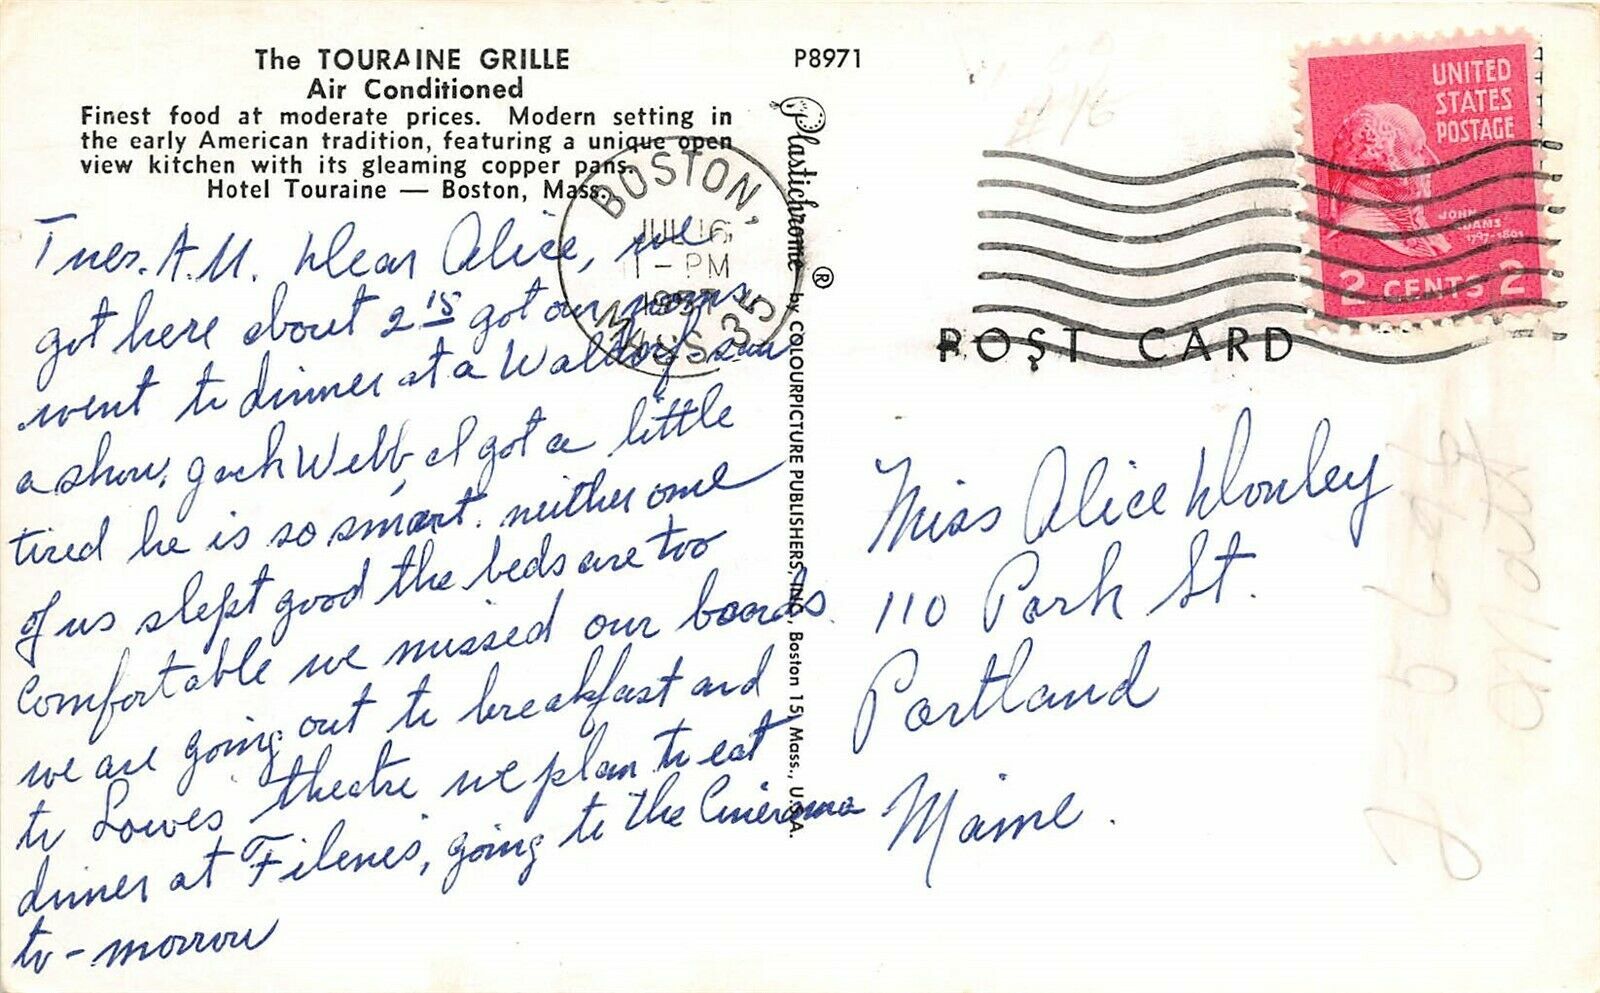 The TOURAINE GRILLE
Air Conditioned
Finest food at moderate prices. Modern setting in
the early American tradition, featuring a unique open
view kitchen with its gleaming copper pans.
Hotel Touraine — Boston, Mass.
Tues. A.M. Dear Alice, we
got here about 2 15 got our rooms
went to dinner at a Waldorf- saw
a show, Jack Webb, I got a little
tired he is so smart. neither one
of us slept good the beds are too
comfortable we missed our boards.
we are going out to breakfast and
to Lowes theatre we plan to eat
dinner at Filenes, going to the Cinerama
to-morrow
P8971
Plastichrome ® by COLOURPICTURE PUBLISHERS, INC., Boston 15, Mass., U.S.A.
BOSTON,
JUL 16
1957
MASS. 35
UNITED
STATES
POSTAGE
JOHN
ADAMS
1797-1801
2 CENTS 2
POST CARD
Miss Alice Donley
110 Park St.
Portland
Maine.